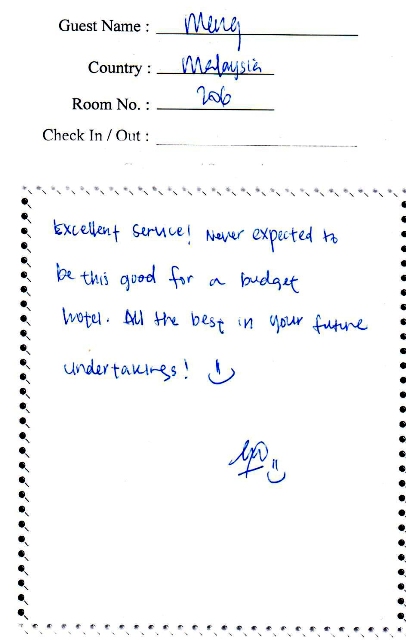 Guest Name : Meng
Country : Malaysia
Room No. : 206
Check In / Out :
Excellent service! Never expected to
be this good for a budget
hotel. All the best in your future
undertakings!